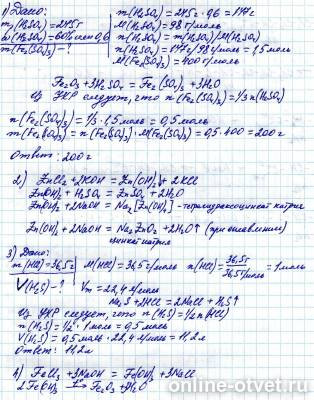 1) Дано:
m₁(H₂SO₄) = 245г
ω(H₂SO₄) = 60% или 0,6
m(Fe₂(SO₄)₃) - ?
m(H₂SO₄) = 245г · 0,6 = 147г
M(H₂SO₄) = 98 г/моль
n(H₂SO₄) = m(H₂SO₄)/M(H₂SO₄)
n(H₂SO₄) = 147г / 98г/моль = 1,5моль
M(Fe₂(SO₄)₃) = 400г/моль
Fe₂O₃ + 3H₂SO₄ = Fe₂(SO₄)₃ + 3H₂O
Из УХР следует, что n(Fe₂(SO₄)₃) = 1/3 n(H₂SO₄)
n(Fe₂(SO₄)₃) = 1/3 · 1,5моль = 0,5моль
m(Fe₂(SO₄)₃) = n(Fe₂(SO₄)₃) · M(Fe₂(SO₄)₃) = 0,5 · 400 = 200г
Ответ: 200г
2) ZnCl₂ + 2KOH = Zn(OH)₂↓ + 2KCl
Zn(OH)₂ + H₂SO₄ = ZnSO₄ + 2H₂O
Zn(OH)₂ + 2NaOH = Na₂[Zn(OH)₄] - тетрагидроксоцинкат натрия
Zn(OH)₂ + 2NaOH = Na₂ZnO₂ + 2H₂O↑ (при сплавлении)
цинкат натрия
3) Дано:
m(HCl) = 36,5г
V(H₂S) - ?
M(HCl) = 36,5г/моль
n(HCl) = 36,5г / 36,5г/моль = 1моль
Vm = 22,4 л/моль
Na₂S + 2HCl = 2NaCl + H₂S↑
Из УХР следует, что n(H₂S) = 1/2 n(HCl)
n(H₂S) = 1/2 · 1моль = 0,5моль
V(H₂S) = 0,5моль · 22,4л/моль = 11,2л
Ответ: 11,2л
4) FeCl₃ + 3NaOH = Fe(OH)₃ + 3NaCl
online-otvet.ru